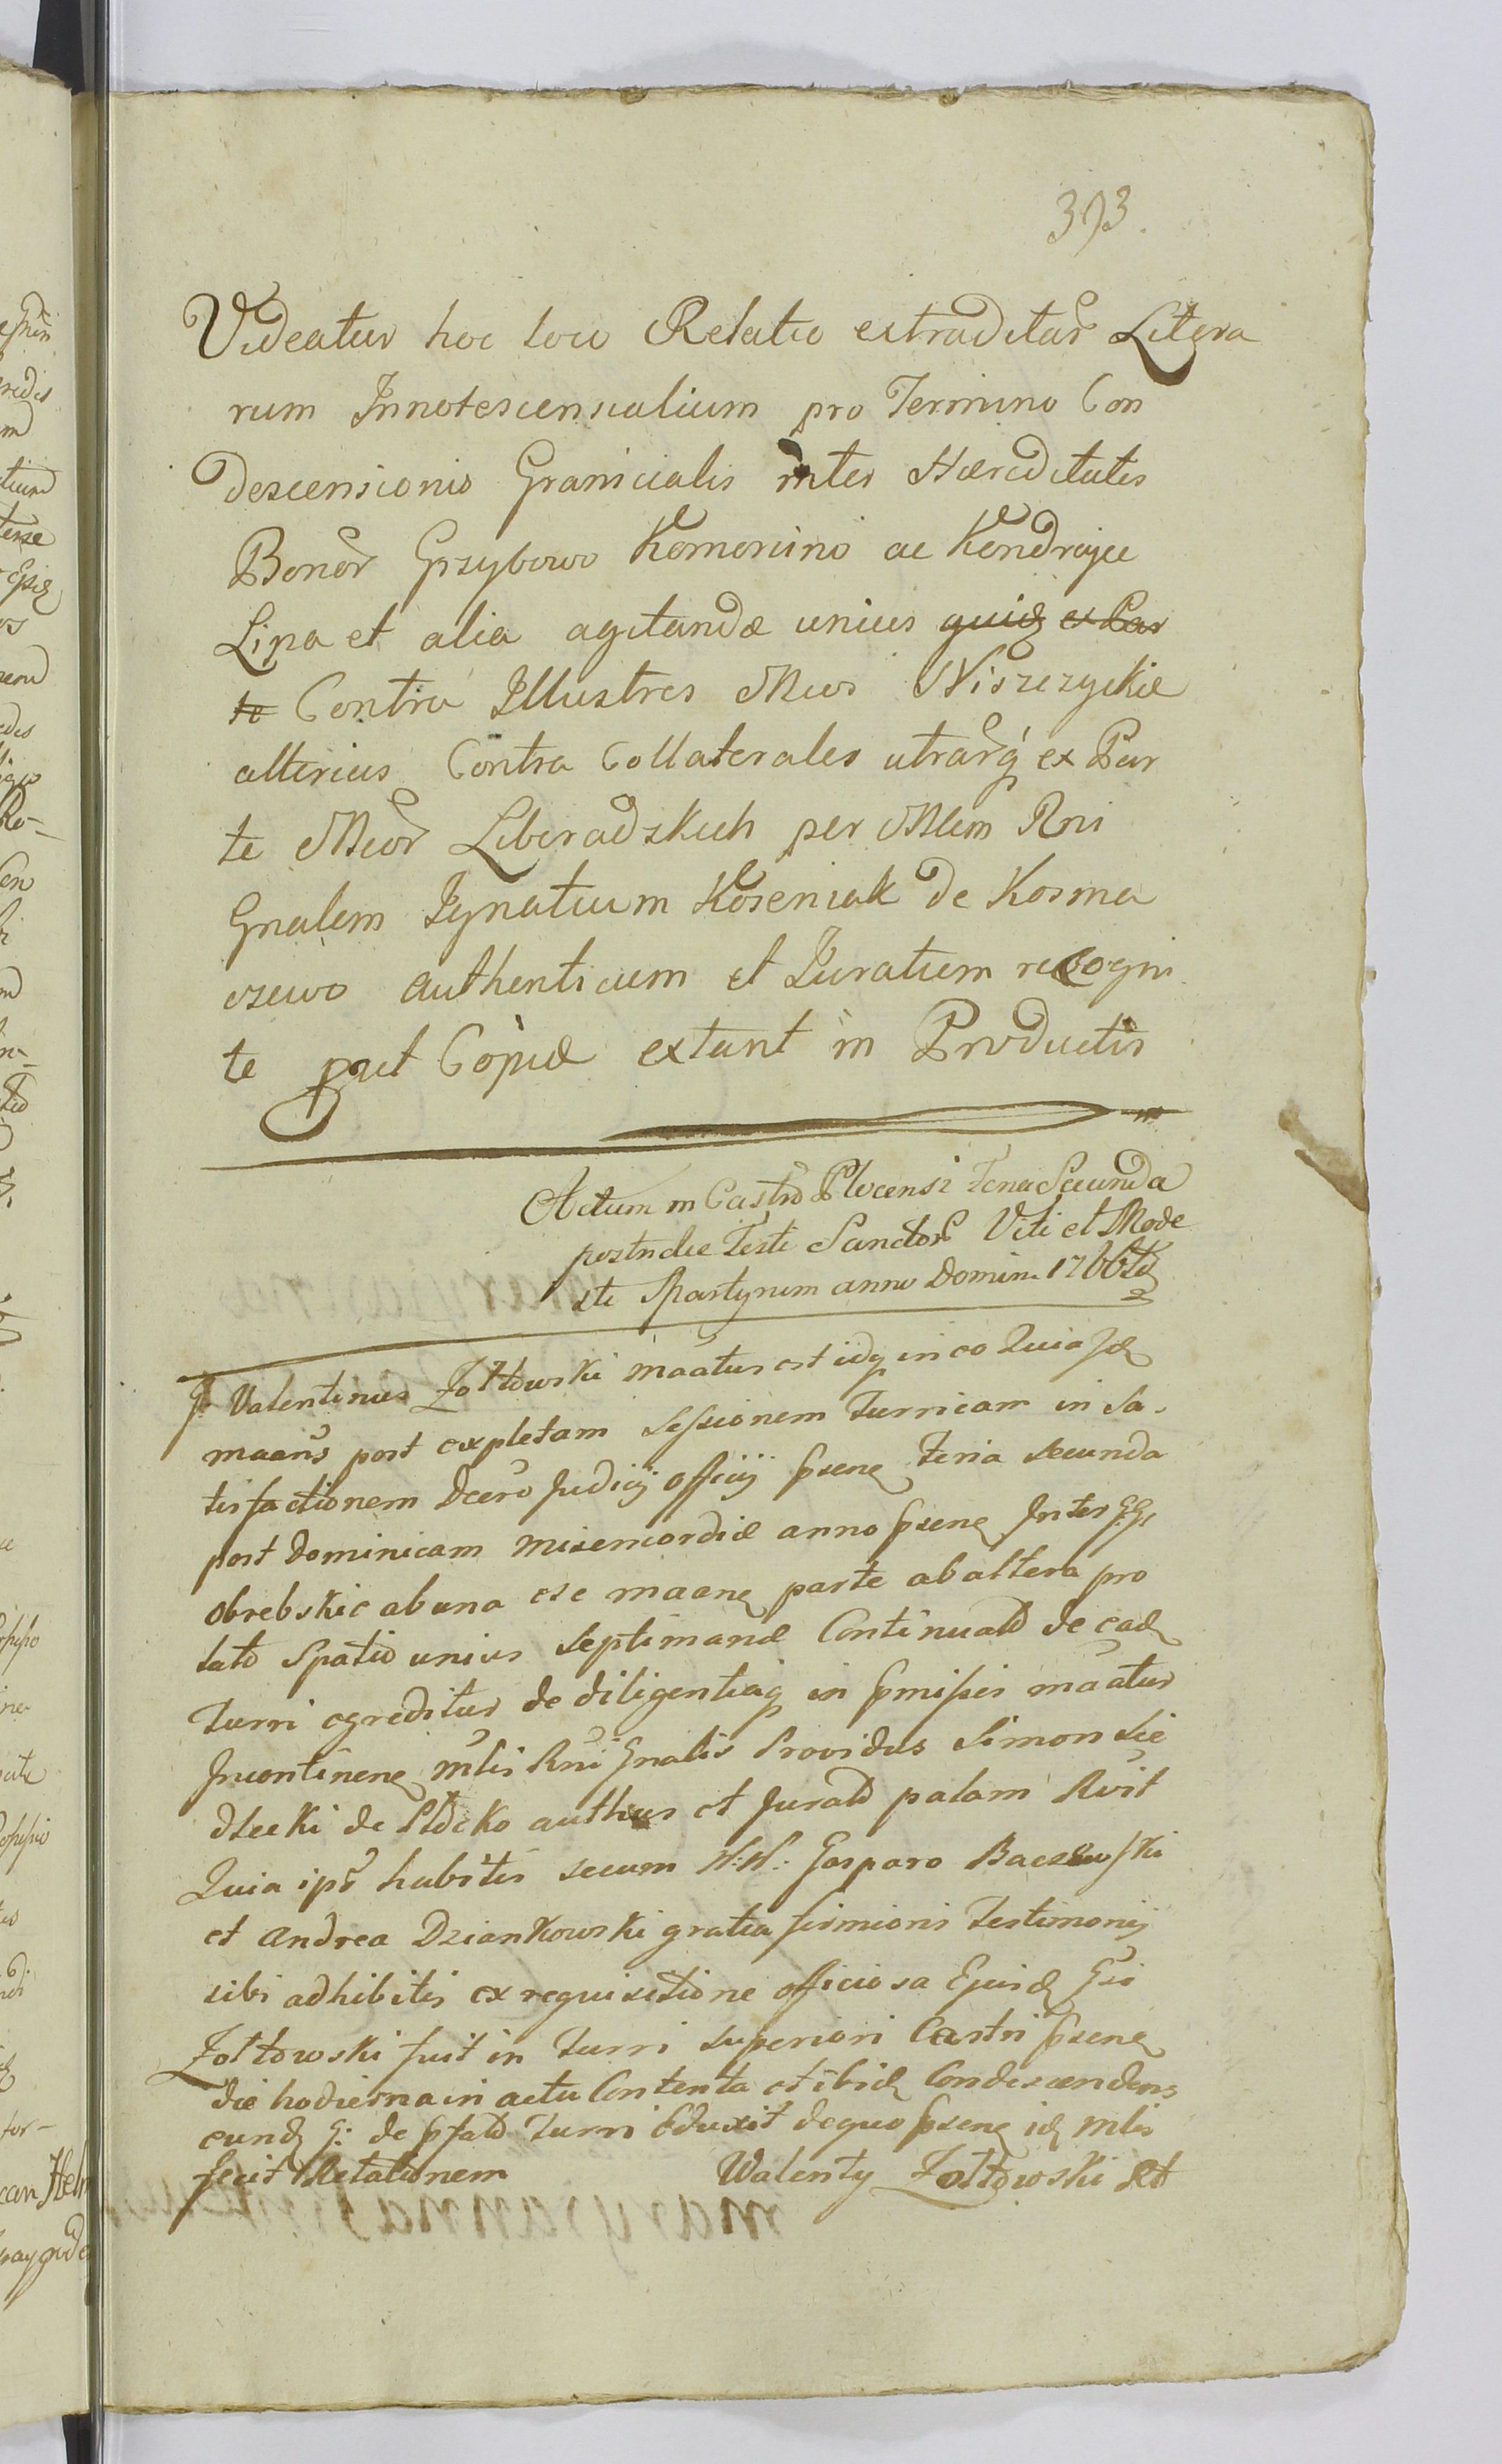 393.
Videatur hoc loco Relatio extraditar Litera
rum Innotescensialium pro Termino Con
descensionis Granicialis inter Hæreditates
Bonor Grzybowo Komorino ac Kendrajec
Lipa et alia agitandæ unius quidem ex Par
te Contra Illustres Mcos Niszczyckie
alterius Contra Collaterales utrarq ex Par
te Mcor Liberadzkich per Mlem Rni
Gnalem Ignatium Koseniak de Kosma
czewo authenticum et Juratum recogni
te put Copiæ extant in Productis
Actum in Castro Plocensi Feria Secunda
postridie Festi Sanctor Viti et Mode
sti Martyrum anno Domini 1766to
G. Valentinus Zołtowski maatus est idq in eo Quia Id
maans post expletam sessionem Turricam in Sa-
tisfactionem Dcero Judicij officij psenq Feria Secunda
post Dominicam Misericordiæ anno psenq Inter GG.
Obrebskie ab una ese maanq parte ab altera pro
lato Spatio unius Septimanæ Continuato de ead
Turri egreditur de diligentiaq in pmissis maatur
Incontinenq Mlis Rni Gnalis Providus Simon Sie
dlecki de Płocko authus et Jurato palam Rvit
Quia ips habitis secum N:N: Gasparo Baczewski
et Andrea Dziankowski gratia firmioris Testimonij
sibi adhibitis ex requisitione officiosa Ejusd Gsi
Zołtowski fuit in Turri superiori Castri psenq
die hodierna in actu Contenta et ibid Condescendens
eund G: de pfato Turri Eduxit de quo psenq id Mlis
fecit Relationem Walenty Zołtowski